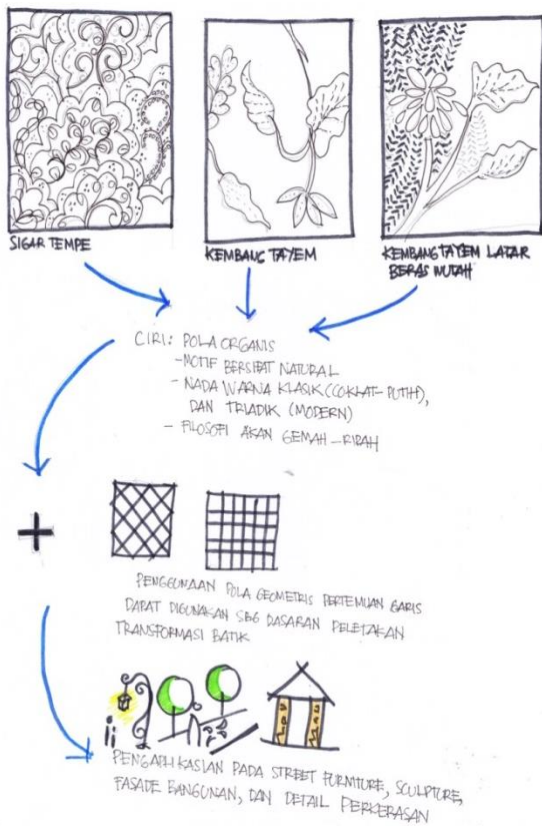 SIGAR TEMPE
KEMBANG TAYEM
KEMBANG TAYEM LATAR
BERAS WUTAH
CIRI: POLA ORGANIS
- MOTIF BERSIFAT NATURAL
- NADA WARNA KLASIK (COKLAT-PUTIH),
DAN TRIADIK (MODERN)
- FILOSOFI AKAN GEMAH-RIPAH
+
PENGGUNAAN POLA GEOMETRIS PERTEMUAN GARIS
DAPAT DIGUNAKAN SBG DASARAN PELETAKAN
TRANSFORMASI BATIK
PENGAPLIKASIAN PADA STREET FURNITURE, SCULPTURE,
FASADE BANGUNAN, DAN DETAIL PERKERASAN